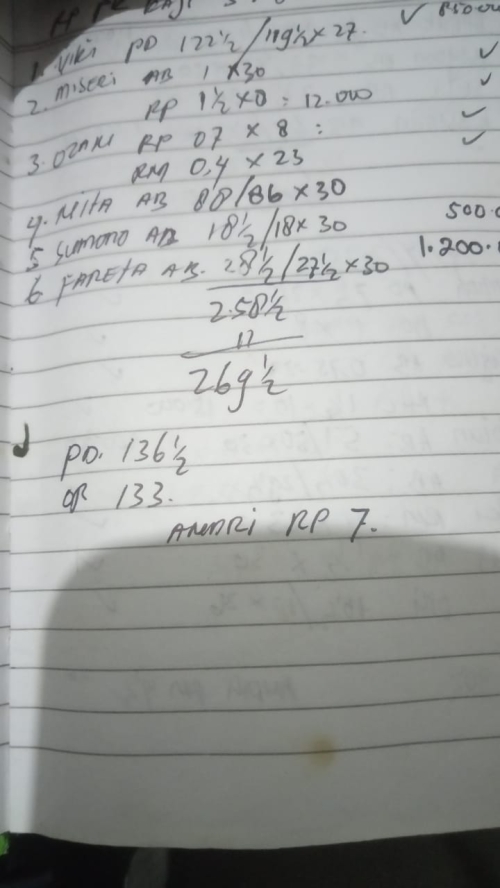 1. VIKI PD 122½/119½ x 27. ✓ 850.000
2. MISERI AB 1 x 30 ✓
RP 1½ x 8 : 12.000 ✓
3. OZAKI RP 07 x 8 : ✓
RM 0,4 x 23 ✓
4. MITA AB 88/86 x 30
5 SUMONO AB 18½/18 x 30 500.0
6 FARETA AB. 28½/27½ x 30 1.200.0
2.58½
11
269½
PD. 136½
OR 133.
ANDRI RP 7.